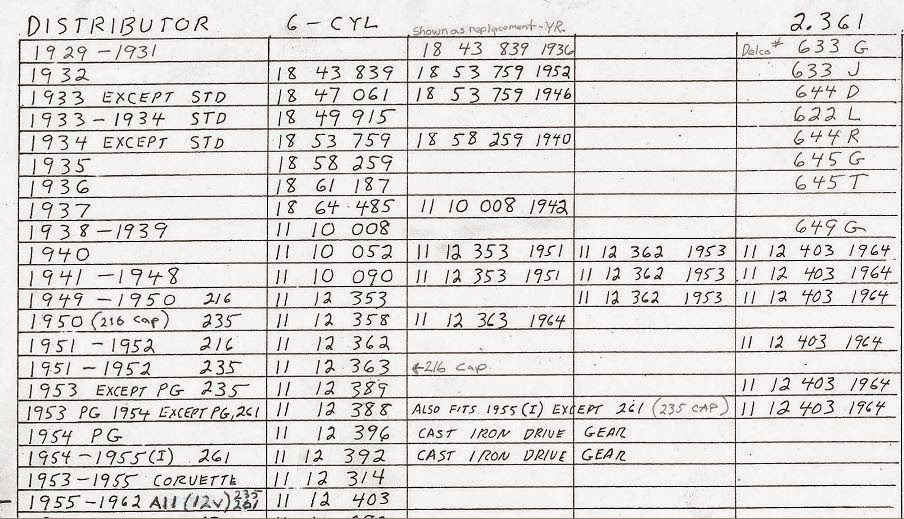 DISTRIBUTOR 6-CYL Shown as replacement-YR. 2.361
1929-1931 18 43 839 1936 Delco# 633 G
1932 18 43 839 18 53 759 1952 633 J
1933 EXCEPT STD 18 47 061 18 53 759 1946 644 D
1933-1934 STD 18 49 915 622 L
1934 EXCEPT STD 18 53 759 18 58 259 1940 644 R
1935 18 58 259 645 G
1936 18 61 187 645 T
1937 18 64 485 11 10 008 1942
1938-1939 11 10 008 649 G
1940 11 10 052 11 12 353 1951 11 12 362 1953 11 12 403 1964
1941-1948 11 10 090 11 12 353 1951 11 12 362 1953 11 12 403 1964
1949-1950 216 11 12 353 11 12 362 1953 11 12 403 1964
1950 (216 cap) 235 11 12 358 11 12 363 1964
1951-1952 216 11 12 362 11 12 403 1964
1951-1952 235 11 12 363 ←216 cap
1953 EXCEPT PG 235 11 12 389 11 12 403 1964
1953 PG 1954 EXCEPT PG,261 11 12 388 ALSO FITS 1955(I) EXCEPT 261 (235 CAP) 11 12 403 1964
1954 PG 11 12 396 CAST IRON DRIVE GEAR
1954-1955(I) 261 11 12 392 CAST IRON DRIVE GEAR
1953-1955 CORVETTE 11 12 314
1955-1962 All (12v) 235 261 11 12 403